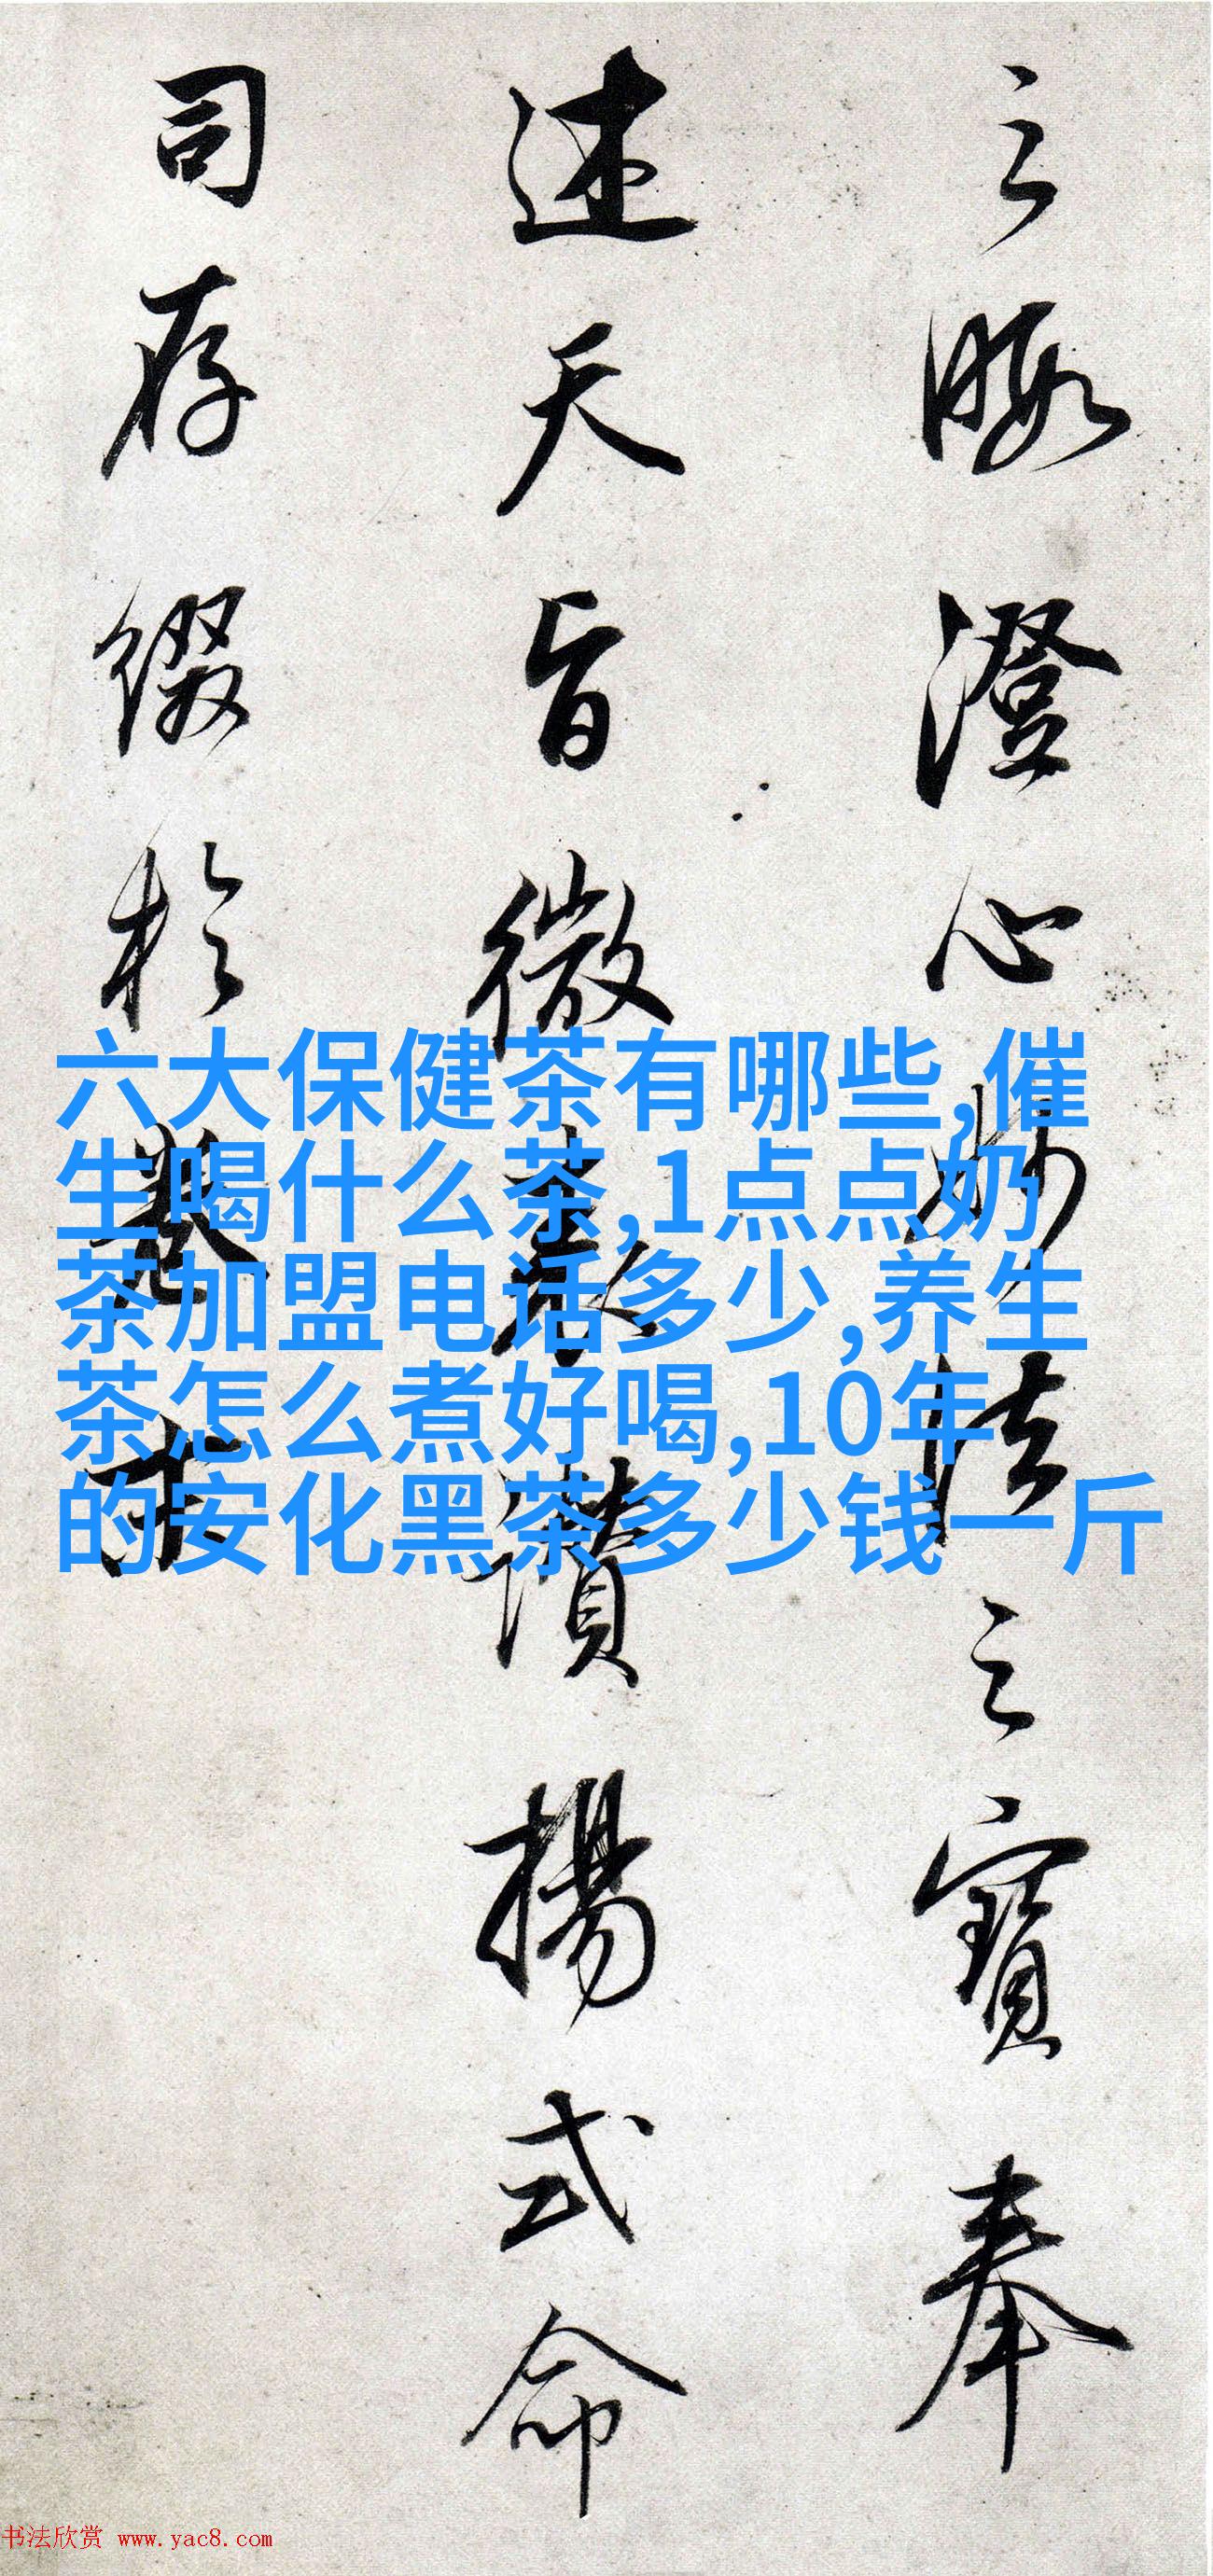 之暇澄心妙法之寶奉
述天旨微表讚揚式命
司存綴於卷末
六大保健茶有哪些,催
生喝什么茶,1点点奶
茶加盟电话多少,养生
茶怎么煮好喝,10年
的安化黑茶多少钱一斤
书法欣赏 www.yac8.com